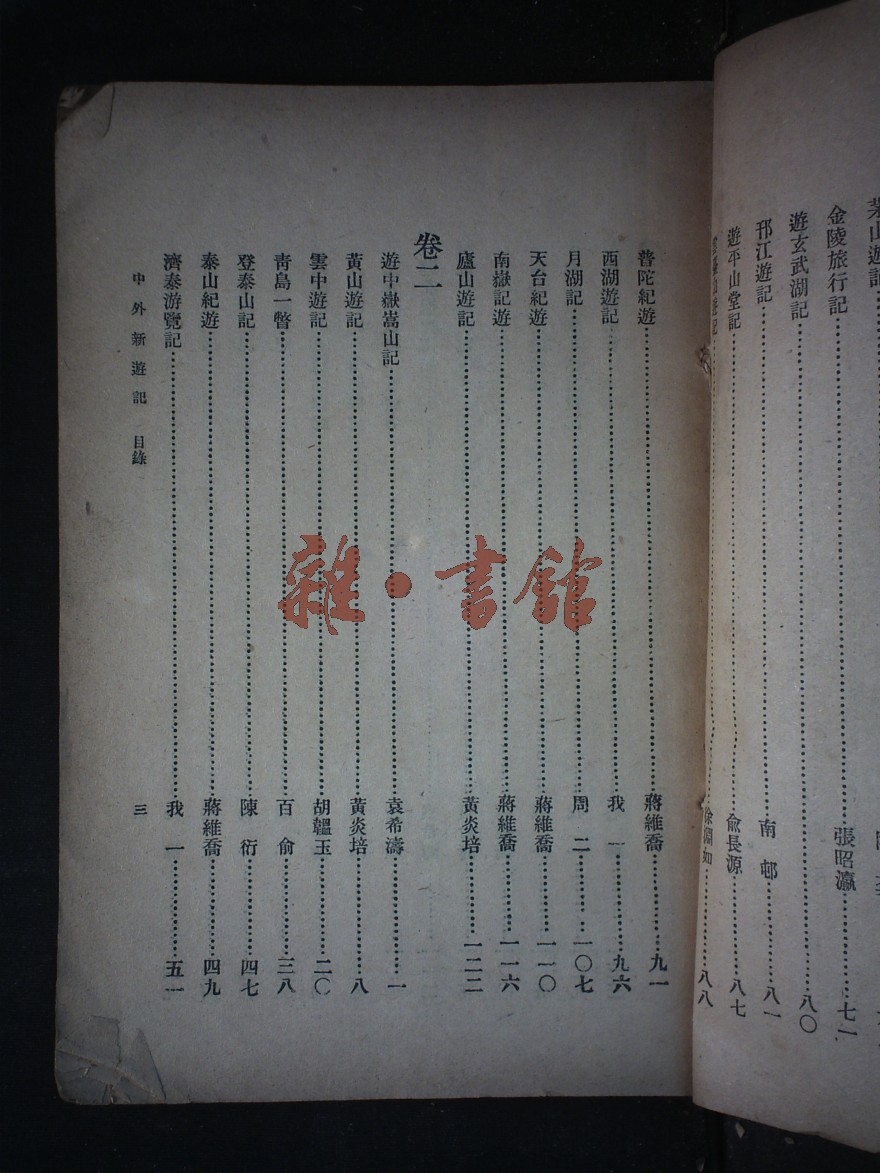 金陵旅行記……張昭瀛……七一
遊玄武湖記……八〇
邗江遊記……南邨……八一
遊平山堂記……俞長源……八七
山遊記……徐淵如……八八
普陀紀遊……蔣維喬……九一
西湖遊記……我一……九六
月湖記……周二……一〇七
天台紀遊……蔣維喬……一一〇
南嶽記遊……蔣維喬……一一六
廬山遊記……黃炎培……一二二
卷二
遊中嶽嵩山記……袁希濤……一
黃山遊記……黃炎培……八
雲中遊記……胡韞玉……二〇
靑島一瞥……百俞……三八
登泰山記……陳衍……四七
泰山紀遊……蔣維喬……四九
濟泰游覽記……我一……五一
中外新遊記 目錄
三
雜·書館